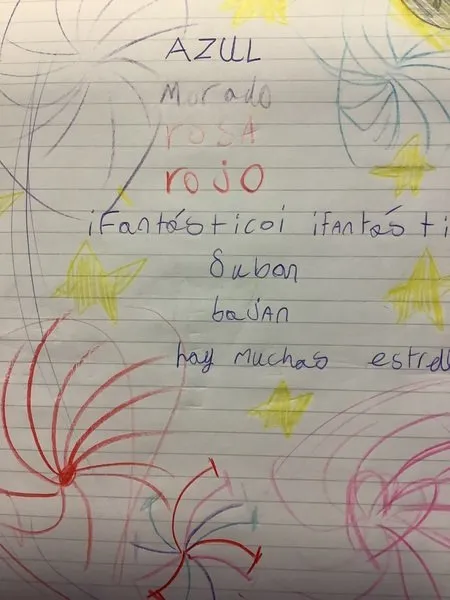 AZUL
Morado
rosA
rojo
¡Fantásticoi ¡fAntásti
Suban
bajAn
hay muchas estrell